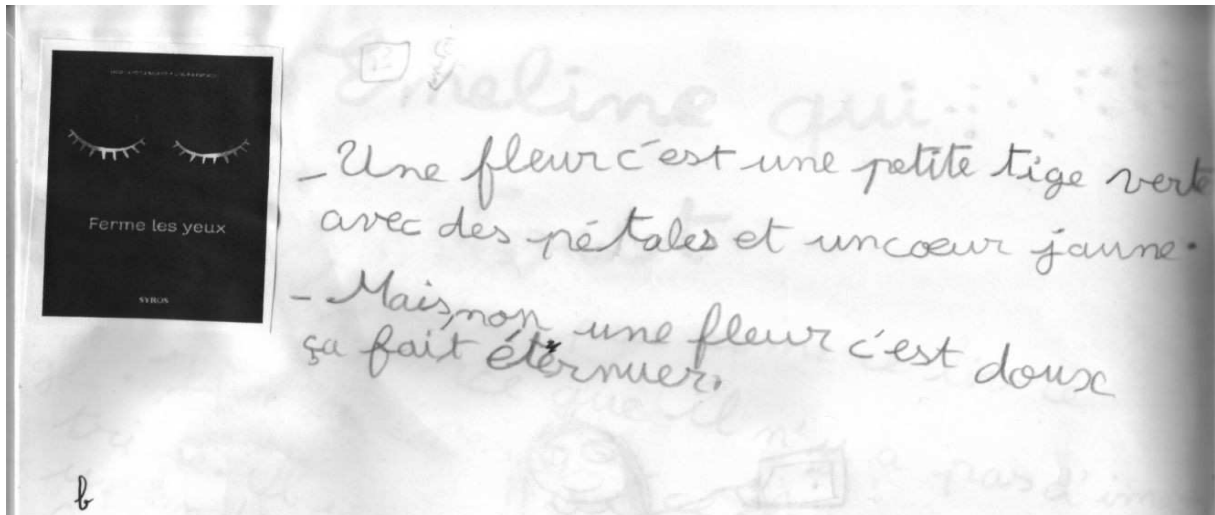 Ferme les yeux
SYROS
Emeline qui
_ Une fleur c'est une petite tige verte
avec des pétales et un cœur jaune.
- Mais, non une fleur c'est doux
ça fait éternuer.
que il n'y a pas d'im
b